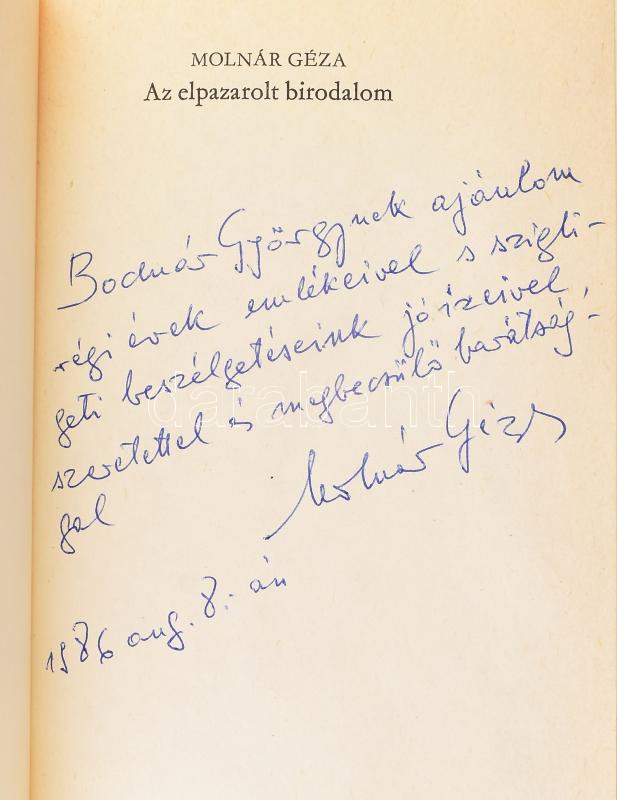 MOLNÁR GÉZA
Az elpazarolt birodalom
Bodnár Györgynek ajánlom
régi évek emlékeivel s szigli-
geti beszélgetéseink jó ízeivel,
szeretettel és megbecsülő barátság-
gal
Molnár Géza
1986 aug. 8.-án
darabanth